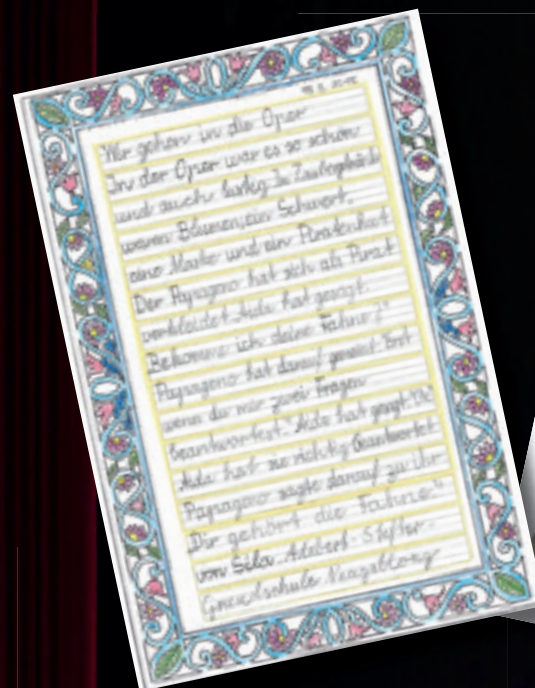 Wir gehen in die Oper
In der Oper war es so schön
und auch lustig. In
waren Blumen, ein Schwert,
eine Maske und ein Piratenhut.
Der Papageno hat sich als Pirat
verkleidet. Aida hat gesagt:
Bekomme ich deine Fahne?"
Papageno hat darauf gemeint: Erst
wenn du mir zwei Fragen
beantwortest." Aida hat gesagt:
Aida hat sie richtig beantwortet.
Papageno sagte darauf zu ihr
Dir gehört die Fahne."
von Sila Adalbert-Stifter-
Grundschule Neugablonz